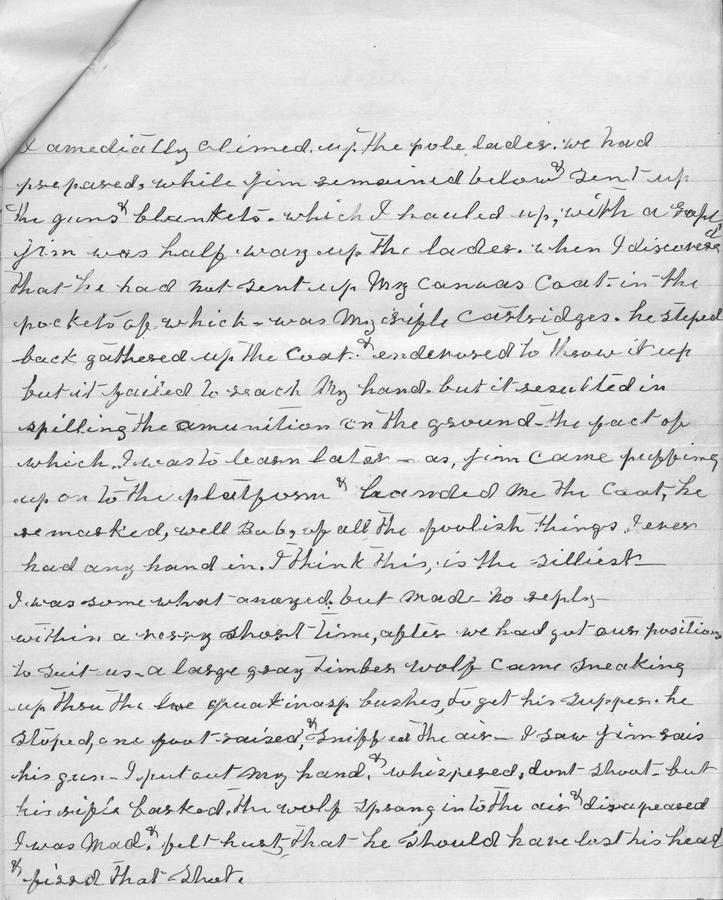 I amediatly climed. up, the pole lader. we had
prepared, while Jim remained below & sent up
the guns & blankets. which I hauled up, with a rope
Jim was half way up the lader. when I discovered
that he had not sent up My canvas Coat. in the
pockets of which - was My rifle Cartridges. he steped
back gathered up the Coat. & endevored to throw it up
but it failed to reach My hand. but it resulted in
spilling the amunition on the ground - the fact of
which. I was to learn later - as, Jim Came puffing
up on to the platform & handed Me the Coat, he
remarked, well Bob, of all the foolish things, I ever
had any hand in. I think this, is the silliest -
I was some what anoyed. but Made No reply -
within a verry short time, after we had got our positions
to suit us - a large gray timber wolf Came sneaking
up thru the low quakinasp bushes, to get his supper. he
stoped, one foot raised, & sniffed the air - I saw Jim rais
his gun - I put out My hand, & whispered, dont shoot - but
his rifle barked. the wolf sprang in to the air & disapeared
I was Mad, & felt hurt, that he should have lost his head
& fired that Shot.